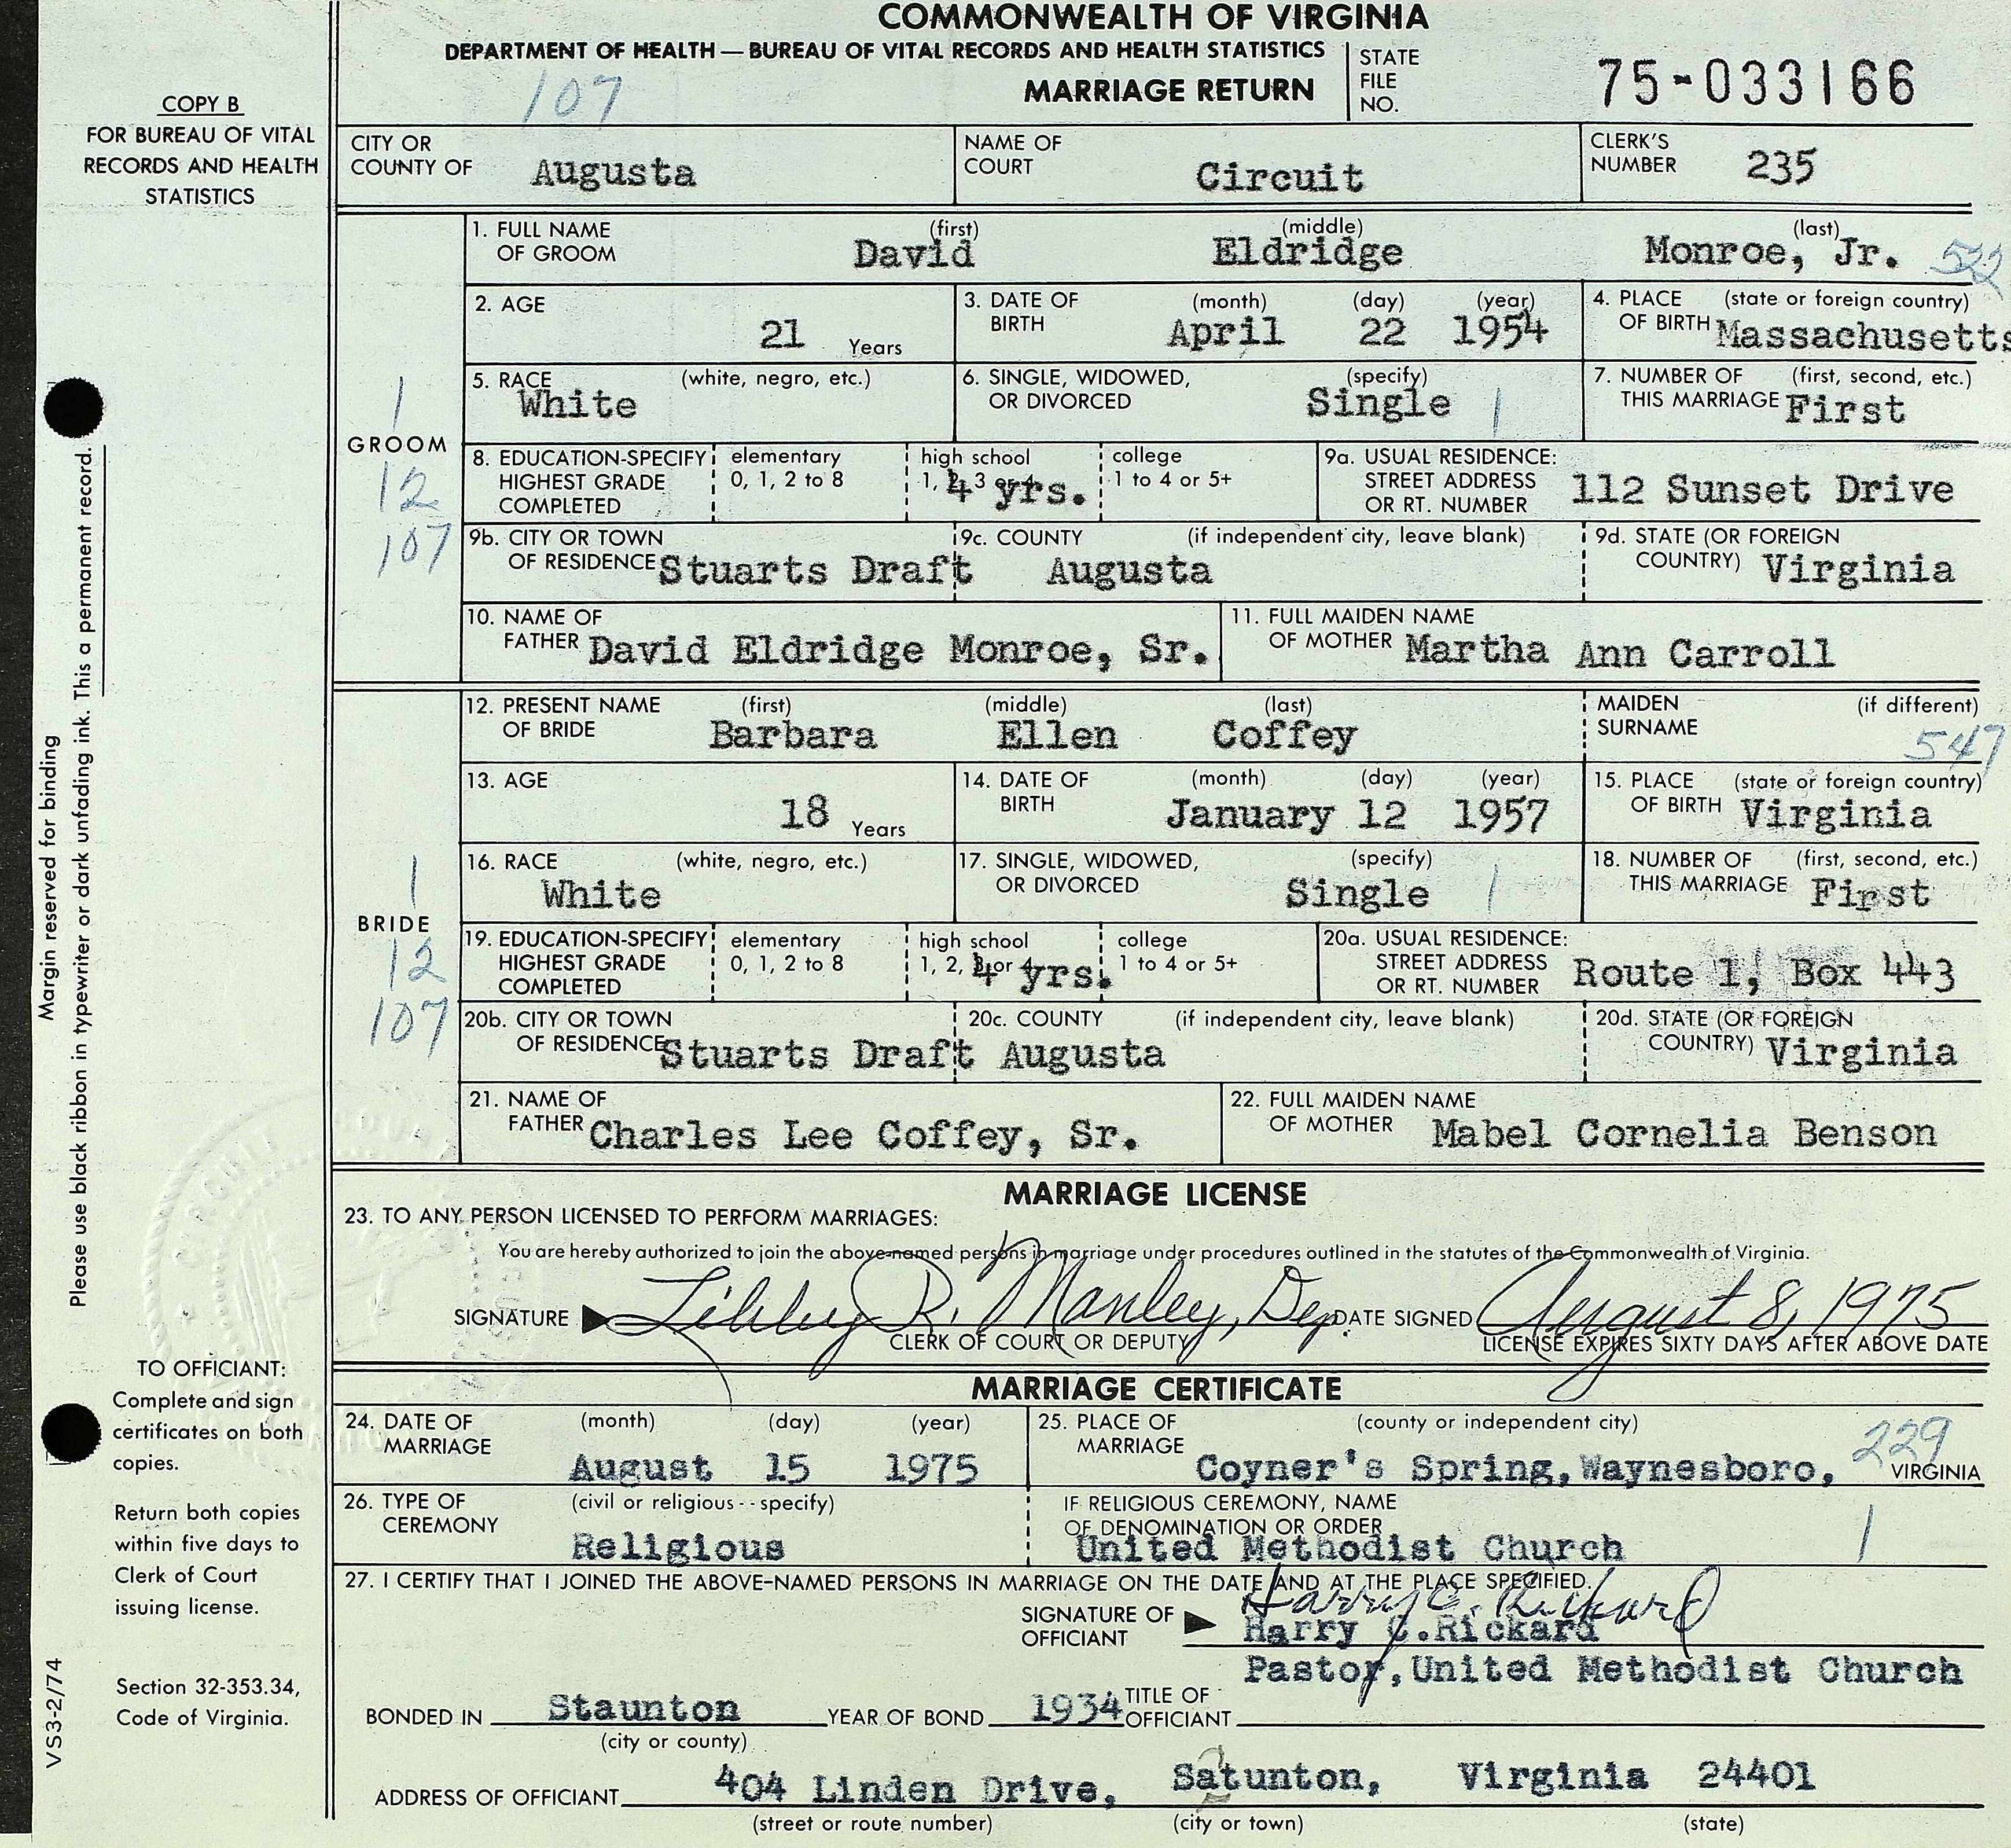 COMMONWEALTH OF VIRGINIA
DEPARTMENT OF HEALTH — BUREAU OF VITAL RECORDS AND HEALTH STATISTICS
107
MARRIAGE RETURN
STATE FILE NO. 75-033166
COPY B
FOR BUREAU OF VITAL
RECORDS AND HEALTH
STATISTICS
CITY OR COUNTY OF Augusta
NAME OF COURT Circuit
CLERK'S NUMBER 235
GROOM
1
12
107
1. FULL NAME OF GROOM (first) David (middle) Eldridge (last) Monroe, Jr. 522
2. AGE 21 Years
3. DATE OF BIRTH (month) April (day) 22 (year) 1954
4. PLACE OF BIRTH (state or foreign country) Massachusetts
5. RACE (white, negro, etc.) White
6. SINGLE, WIDOWED, OR DIVORCED (specify) Single 1
7. NUMBER OF THIS MARRIAGE (first, second, etc.) First
8. EDUCATION-SPECIFY HIGHEST GRADE COMPLETED elementary 0, 1, 2 to 8 high school 1, 2, 3 or 4 4 yrs. college 1 to 4 or 5+
9a. USUAL RESIDENCE: STREET ADDRESS OR RT. NUMBER 112 Sunset Drive
9b. CITY OR TOWN OF RESIDENCE Stuarts Draft
9c. COUNTY (if independent city, leave blank) Augusta
9d. STATE (OR FOREIGN COUNTRY) Virginia
10. NAME OF FATHER David Eldridge Monroe, Sr.
11. FULL MAIDEN NAME OF MOTHER Martha Ann Carroll
BRIDE
1
12
107
12. PRESENT NAME OF BRIDE (first) Barbara (middle) Ellen (last) Coffey
MAIDEN SURNAME (if different) 547
13. AGE 18 Years
14. DATE OF BIRTH (month) January (day) 12 (year) 1957
15. PLACE OF BIRTH (state or foreign country) Virginia
16. RACE (white, negro, etc.) White
17. SINGLE, WIDOWED, OR DIVORCED (specify) Single 1
18. NUMBER OF THIS MARRIAGE (first, second, etc.) First
19. EDUCATION-SPECIFY HIGHEST GRADE COMPLETED elementary 0, 1, 2 to 8 high school 1, 2, 3 or 4 4 yrs. college 1 to 4 or 5+
20a. USUAL RESIDENCE: STREET ADDRESS OR RT. NUMBER Route 1, Box 443
20b. CITY OR TOWN OF RESIDENCE Stuarts Draft
20c. COUNTY (if independent city, leave blank) Augusta
20d. STATE (OR FOREIGN COUNTRY) Virginia
21. NAME OF FATHER Charles Lee Coffey, Sr.
22. FULL MAIDEN NAME OF MOTHER Mabel Cornelia Benson
MARRIAGE LICENSE
23. TO ANY PERSON LICENSED TO PERFORM MARRIAGES:
You are hereby authorized to join the above-named persons in marriage under procedures outlined in the statutes of the Commonwealth of Virginia.
SIGNATURE Libby R. Manley, Dep DATE SIGNED August 8, 1975
CLERK OF COURT OR DEPUTY
LICENSE EXPIRES SIXTY DAYS AFTER ABOVE DATE
MARRIAGE CERTIFICATE
24. DATE OF MARRIAGE (month) August (day) 15 (year) 1975
25. PLACE OF MARRIAGE (county or independent city) Coyner's Spring, Waynesboro, VIRGINIA 229
26. TYPE OF CEREMONY (civil or religious -- specify) Religious
IF RELIGIOUS CEREMONY, NAME OF DENOMINATION OR ORDER United Methodist Church 1
27. I CERTIFY THAT I JOINED THE ABOVE-NAMED PERSONS IN MARRIAGE ON THE DATE AND AT THE PLACE SPECIFIED.
SIGNATURE OF OFFICIANT Harry C. Rickard
Harry C.Rickard
Pastor, United Methodist Church
BONDED IN Staunton YEAR OF BOND 1934 TITLE OF OFFICIANT
(city or county)
ADDRESS OF OFFICIANT 404 Linden Drive, Satunton, Virginia 24401
(street or route number) (city or town) (state)
Margin reserved for binding
Please use black ribbon in typewriter or dark unfading ink. This a permanent record.
TO OFFICIANT:
Complete and sign
certificates on both
copies.
Return both copies
within five days to
Clerk of Court
issuing license.
Section 32-353.34,
Code of Virginia.
VS3-2/74